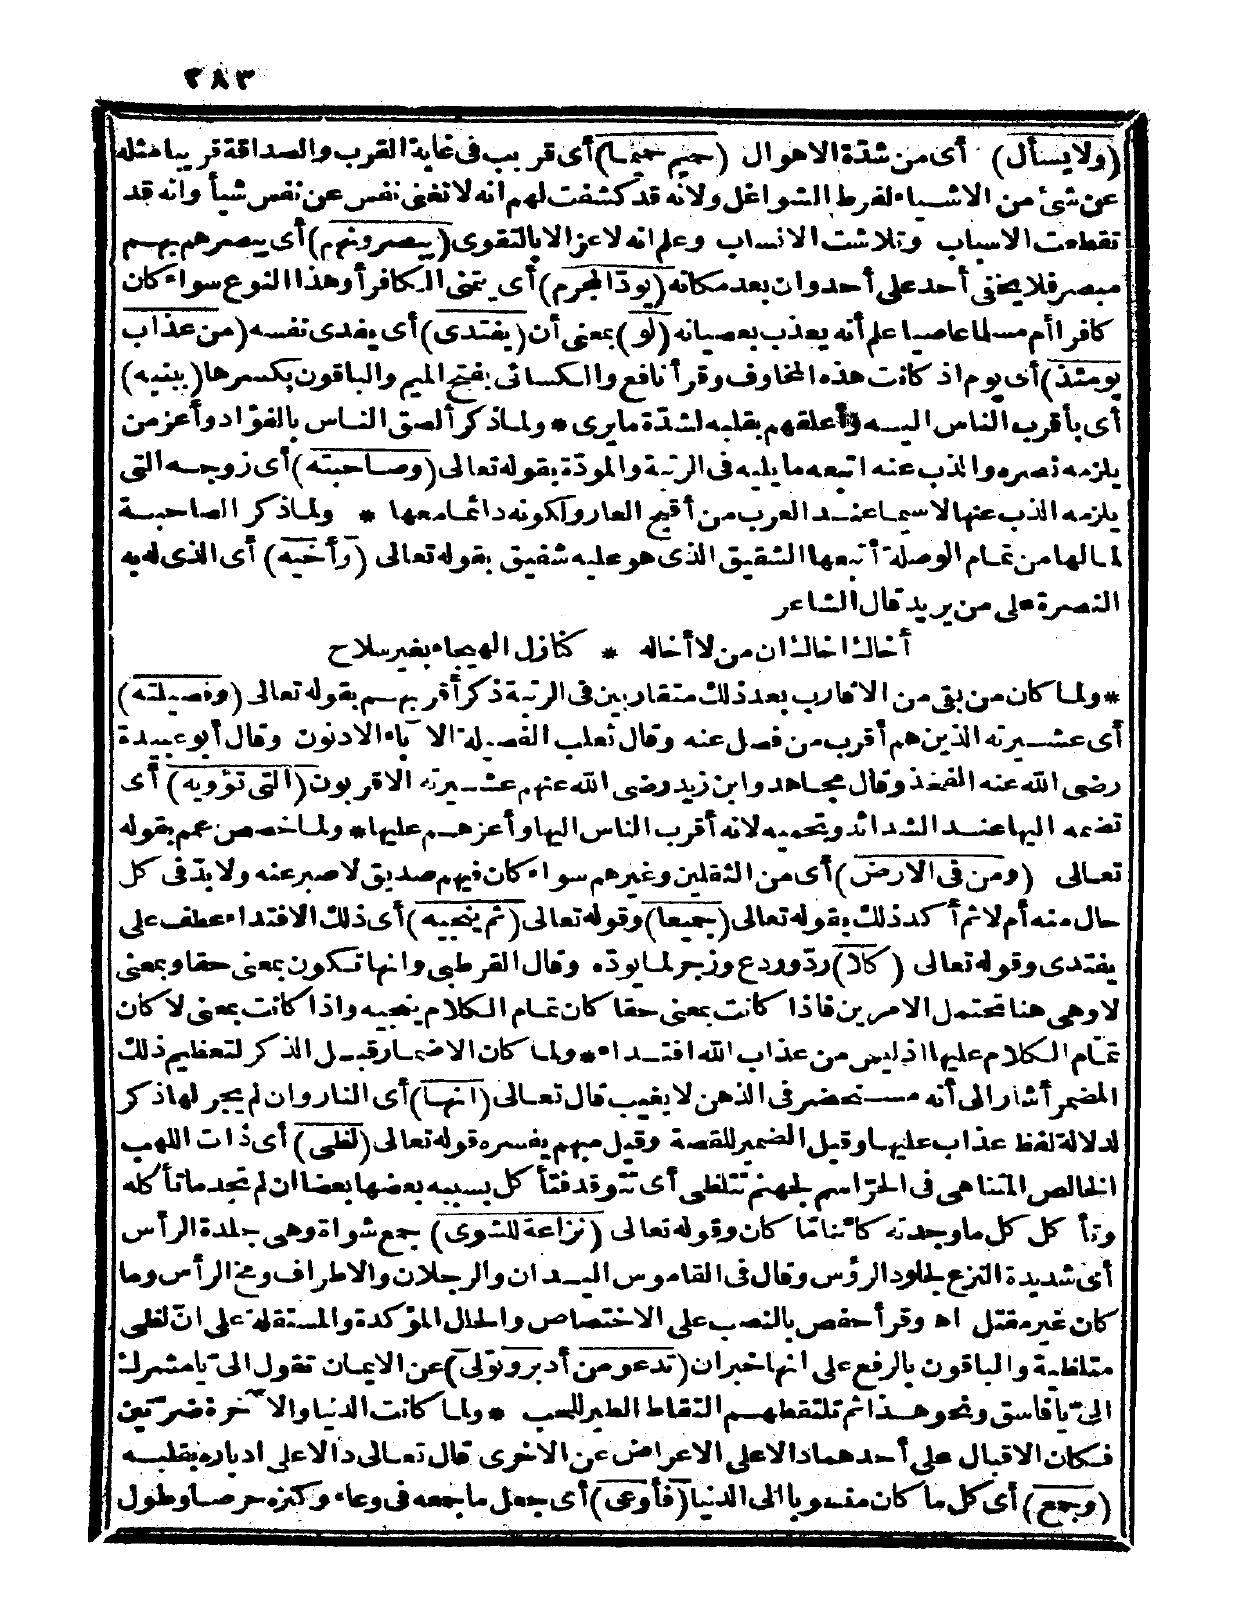 ٣٨٣
(ولا يسأل) أى من شدّة الاهوال (حميم حميما) أى قريب فى غاية القرب والصداقة قريبا مثله
عن شئ من الاشياء لفرط الشواغل ولانه قد كشفت لهم انه لا تغنى نفس عن نفس شيأ وانه قد
تقطعت الاسباب وتلاشت الانساب وعلم انه لا عز الا بالتقوى (يبصرونهم) أى يبصرهم بهم
مبصر فلا يخفى أحد على أحد وان بعد مكانه (يودّ المجرم) أى يتمنى الكافر أو هذا النوع سواء كان
كافرا أم مسلما عاصيا علم أنه يعذب بعصيانه (لو) بمعنى أن (يفتدى) أى يفدى نفسه (من عذاب
يومئذ) أى يوم اذ كانت هذه المخاوف وقرأ نافع والكسائى بفتح الميم والباقون بكسرها (ببنيه)
أى بأقرب الناس اليه وأعلقهم بقلبه لشدّة ما يرى * ولما ذكر ألصق الناس بالفؤاد وأعز من
يلزمه نصره والذب عنه اتبعه ما يليه فى الرتبة والمودّة بقوله تعالى (وصاحبته) أى زوجته التى
يلزمه الذب عنها لاسيما عند العرب من أقبح العار ولكونه دائما معها * ولما ذكر الصاحبة
لما لها من تمام الوصلة أتبعها الشقيق الذى هو عليه شفيق بقوله تعالى (وأخيه) أى الذى له به
النصرة على من يريد قال الشاعر
أخاك اخاك ان من لا أخاله * كنازل الهيجاء بغير سلاح
* ولما كان من بقى من الاقارب بعد ذلك متقاربين فى الرتبة ذكر أقربهم بقوله تعالى (وفصيلته)
أى عشيرته الذين هم أقرب من فصل عنه وقال ثعلب الفصيلة الآباء الادنون وقال أبو عبيدة
رضى الله عنه الفخذ وقال مجاهد وابن زيد رضى الله عنهم عشيرته الاقربون (التى تؤويه) أى
تضمه اليها عند الشدائد وتحميه لانه أقرب الناس اليها وأعزهم عليها * ولما خصص عمم بقوله
تعالى (ومن فى الارض) أى من الثقلين وغيرهم سواء كان فيهم صديق لا صبر عنه ولا بدّ فى كل
حال منه أم لا ثم أكد ذلك بقوله تعالى (جميعا) وقوله تعالى (ثم ينجيه) أى ذلك الافتداء عطف على
يفتدى وقوله تعالى (كلا) ردّ وردع وزجر لما يودّه وقال القرطبى وانها تكون بمعنى حقا وبمعنى
لا وهى هنا تحتمل الامرين فاذا كانت بمعنى حقا كان تمام الكلام ينجيه واذا كانت بمعنى لا كان
تمام الكلام عليها اذ ليس من عذاب الله افتداء * ولما كان الاضمار قبل الذكر لتعظيم ذلك
المضمر أشار الى أنه مستحضر فى الذهن لا يغيب قال تعالى (انها) أى النار وان لم يجر لها ذكر
لدلالة لفظ عذاب عليها وقيل الضمير للقصة وقيل مبهم يفسره قوله تعالى (لظى) أى ذات اللهب
الخالص المتناهى فى الحرّ اسم لجهنم تتلظى أى تتوقد فتأكل بسببه بعضها بعضا ان لم تجد ما تأكله
وتأكل كل ما وجدته كائنا ما كان وقوله تعالى (نزاعة للشوى) جمع شواة وهى جلدة الرأس
أى شديدة النزع لجلود الرؤس وقال فى القاموس اليدان والرجلان والاطراف ومخ الرأس وما
كان غير مقتل اه وقرأ حفص بالنصب على الاختصاص والحال المؤكدة والمستقلة على انّ لظى
متلظية والباقون بالرفع على انها خبر ان (تدعو من أدبر وتولى) عن الايمان تقول الىّ يا مشرك
الىّ يا فاسق ونحو هذا ثم تلتقطهم التقاط الطير للحب * ولما كانت الدنيا والآخرة ضرّتين
فكان الاقبال على أحدهما دالا على الاعراض عن الاخرى قال تعالى دالا على ادباره بقلبه
(وجمع) أى كل ما كان منسوبا الى الدنيا (فأوعى) أى جعل ما جمعه فى وعاء وكنزه حرصا وطول